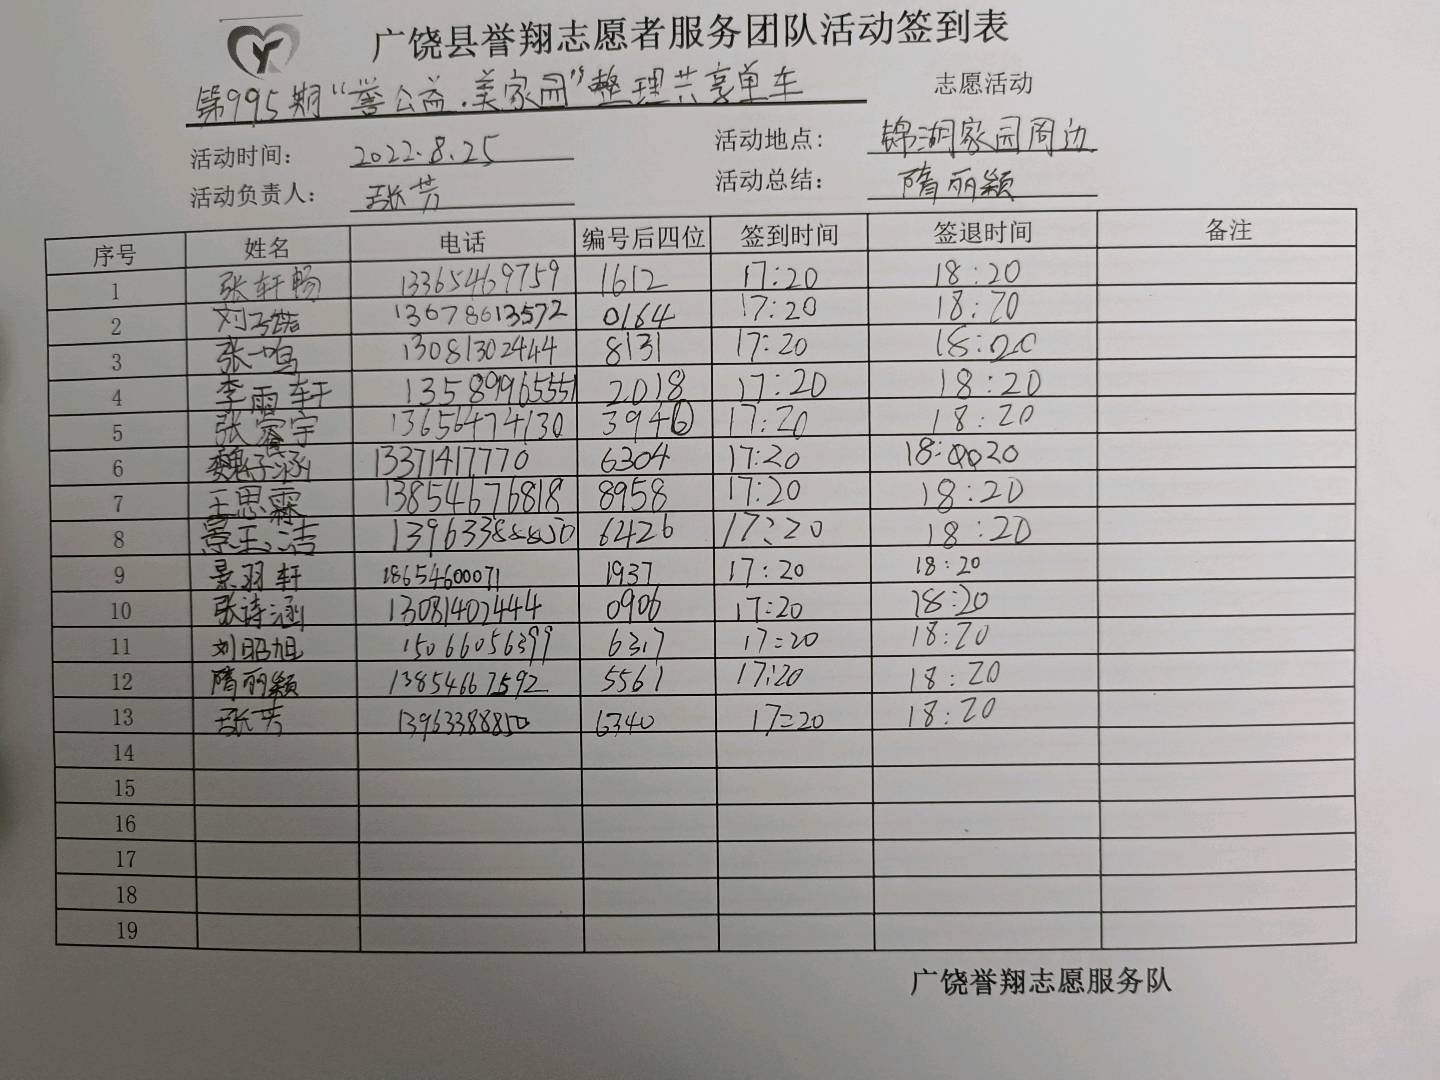 广饶县誉翔志愿者服务团队活动签到表
第995期“誉公益·美家园”整理共享单车 志愿活动
活动时间： 2022.8.25 活动地点： 锦湖家园周边
活动负责人： 张芳 活动总结： 隋丽颖
序号 姓名 电话 编号后四位 签到时间 签退时间 备注
1 张轩畅 13365469759 1612 17:20 18:20
2 刘子皓 13678613572 0164 17:20 18:20
3 张一鸣 13081302444 8131 17:20 18:20
4 李雨轩 13589965551 2018 17:20 18:20
5 张睿宇 13656474130 3946 17:20 18:20
6 魏妤涵 13371417770 6304 17:20 18:20
7 王思霖 13854676818 8958 17:20 18:20
8 景玉洁 13963388850 6426 17:20 18:20
9 景羽轩 18654600071 1937 17:20 18:20
10 张诗涵 13081402444 0906 17:20 18:20
11 刘昭旭 15066056399 6317 17:20 18:20
12 隋丽颖 13854667592 5561 17:20 18:20
13 张芳 13963388850 6340 17:20 18:20
14
15
16
17
18
19
广饶誉翔志愿服务队